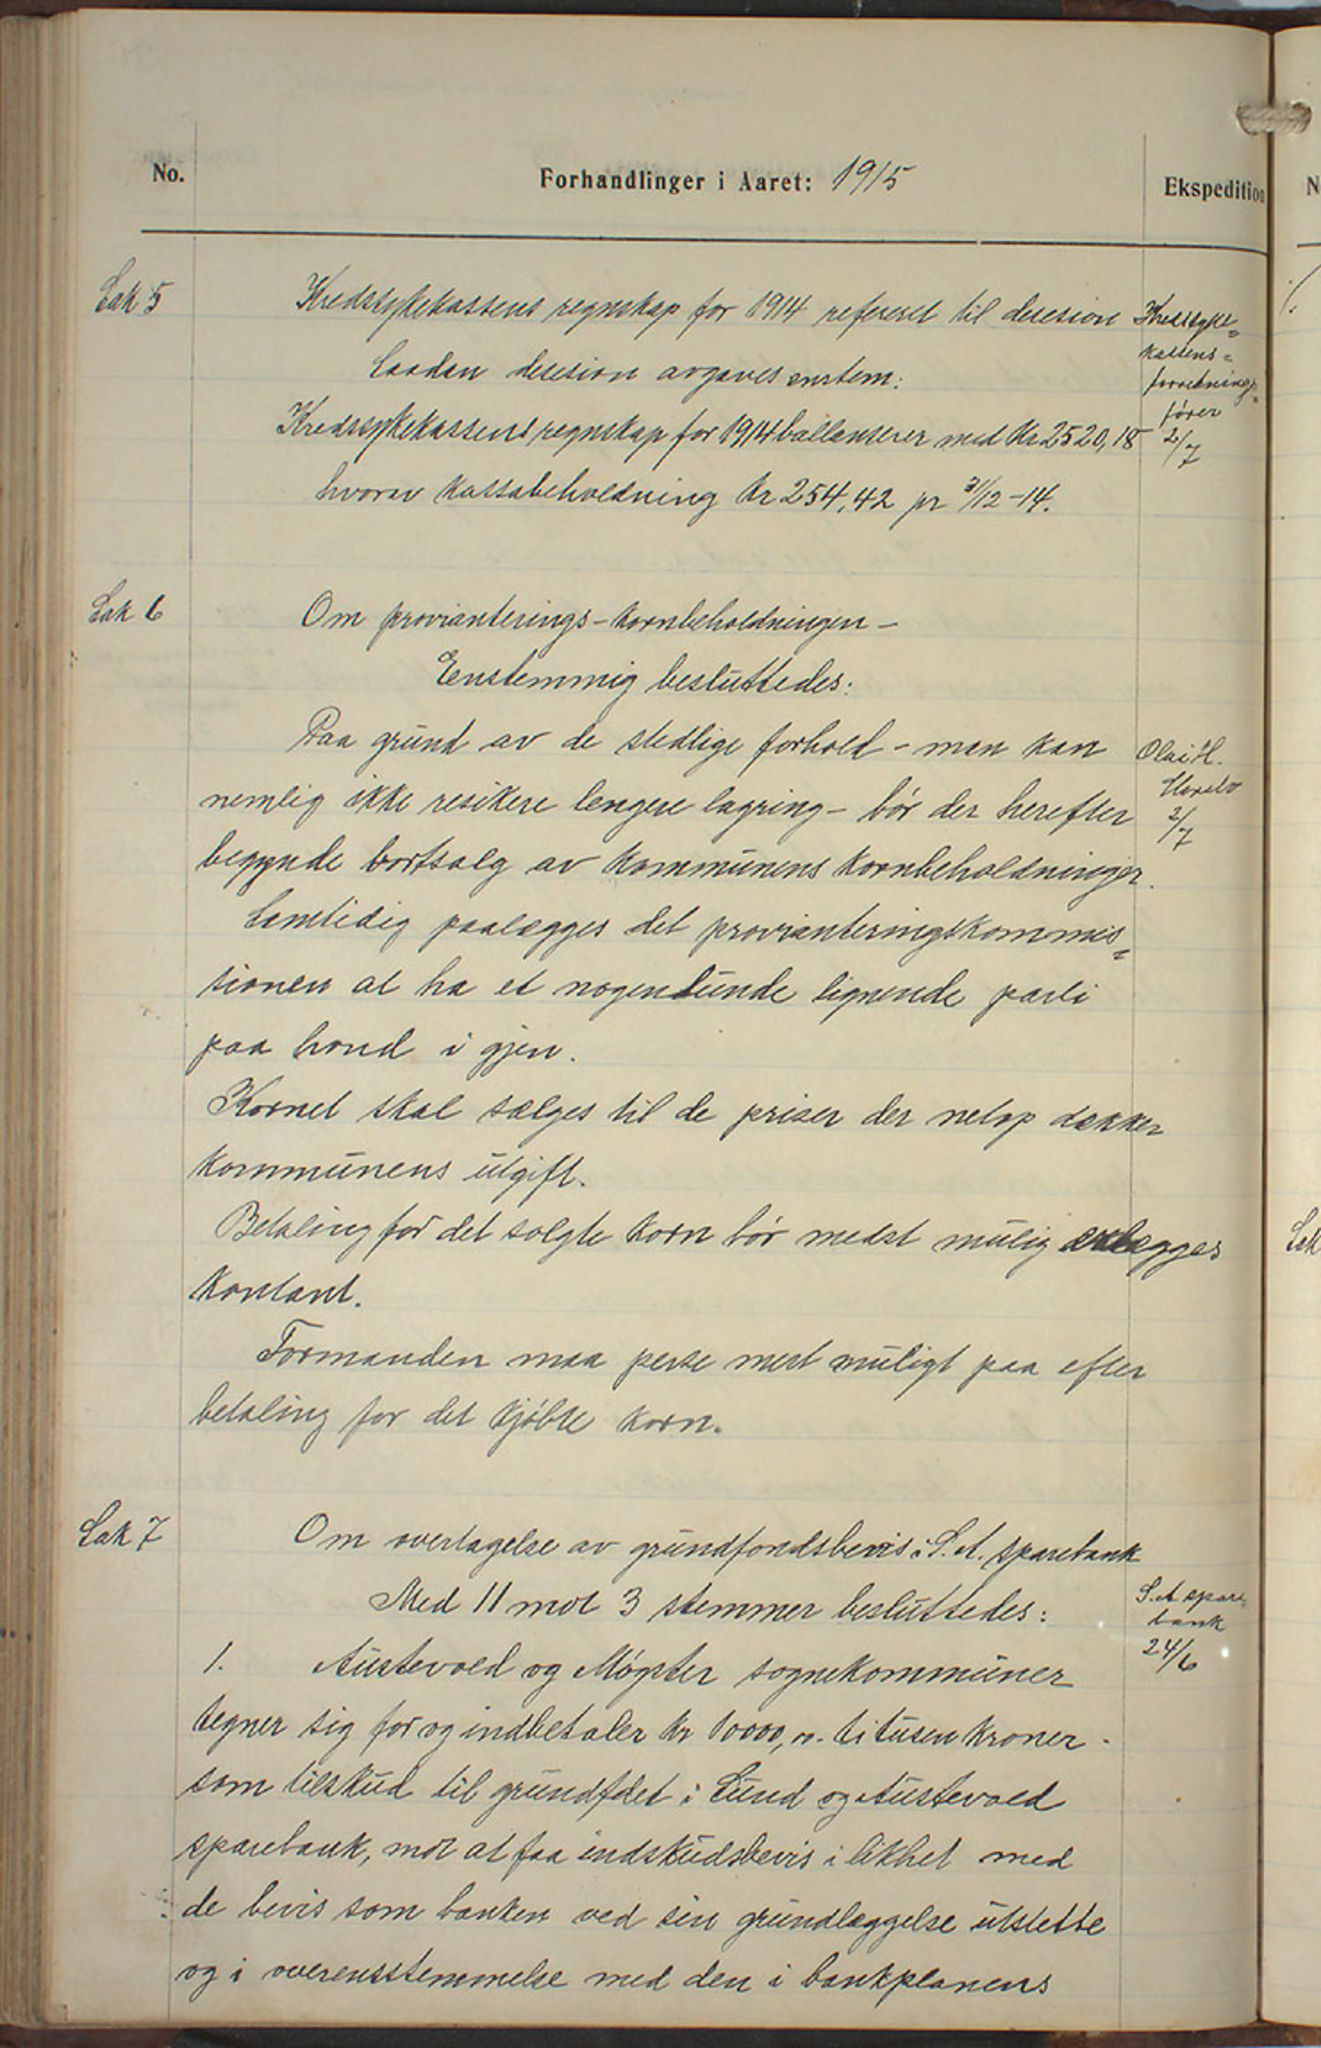 No.
Forhandlinger i Aaret: 1915
Ekspedition
Sak 5
Kredssykekassens regnskap for 1914 refereret til desesion
Saadan desesion avgaves enstem:
Kredssykekassens regnskap for 1914 ballanserer med Kr 2520,18
hvorav kassabeholdning Kr 254,42 pr 31/12-14.
Kredssyke=
kassens=
forretnings=
fører
2/7
Sak 6
Om provianterings-kornbeholdningen-
Eenstemmig besluttedes:
Paa grund av de stedlige forhold - man kan
nemlig ikke resikere lengere lagring - bør der herefter
begynde bortsalg av kommunens kornbeholdninger.
Samtidig paalægges det provianteringskommis=
sionen at ha et nogenlunde lignende parti
paa haand i gjen.
Kornet skal sælges til de priser der netop dækker
kommunens utgift.
Betaling for det solgte korn bør medst mulig erlægges
kontant.
Formanden maa perse mest muligt paa efter
betaling for det kjøbte korn.
Olai H.
2/7
Sak 7
Om overtagelse av grundfondsbevis i S. A. sparebank
Med 11 mot 3 stemmer besluttedes:
1. Austevold og Møgster sognekommuner
tegner sig for og indbetaler Kr 10000,00. titusen kroner.
som tilskud til grundfdet i Sund og Austevold
sparebank, mot at faa indskudsbevis i likhet med
de bevis som banken ved sin grundlæggelse utstette
og i overensstemmelse med den i bankplanens
S. A spare=
bank
24/6
Sak